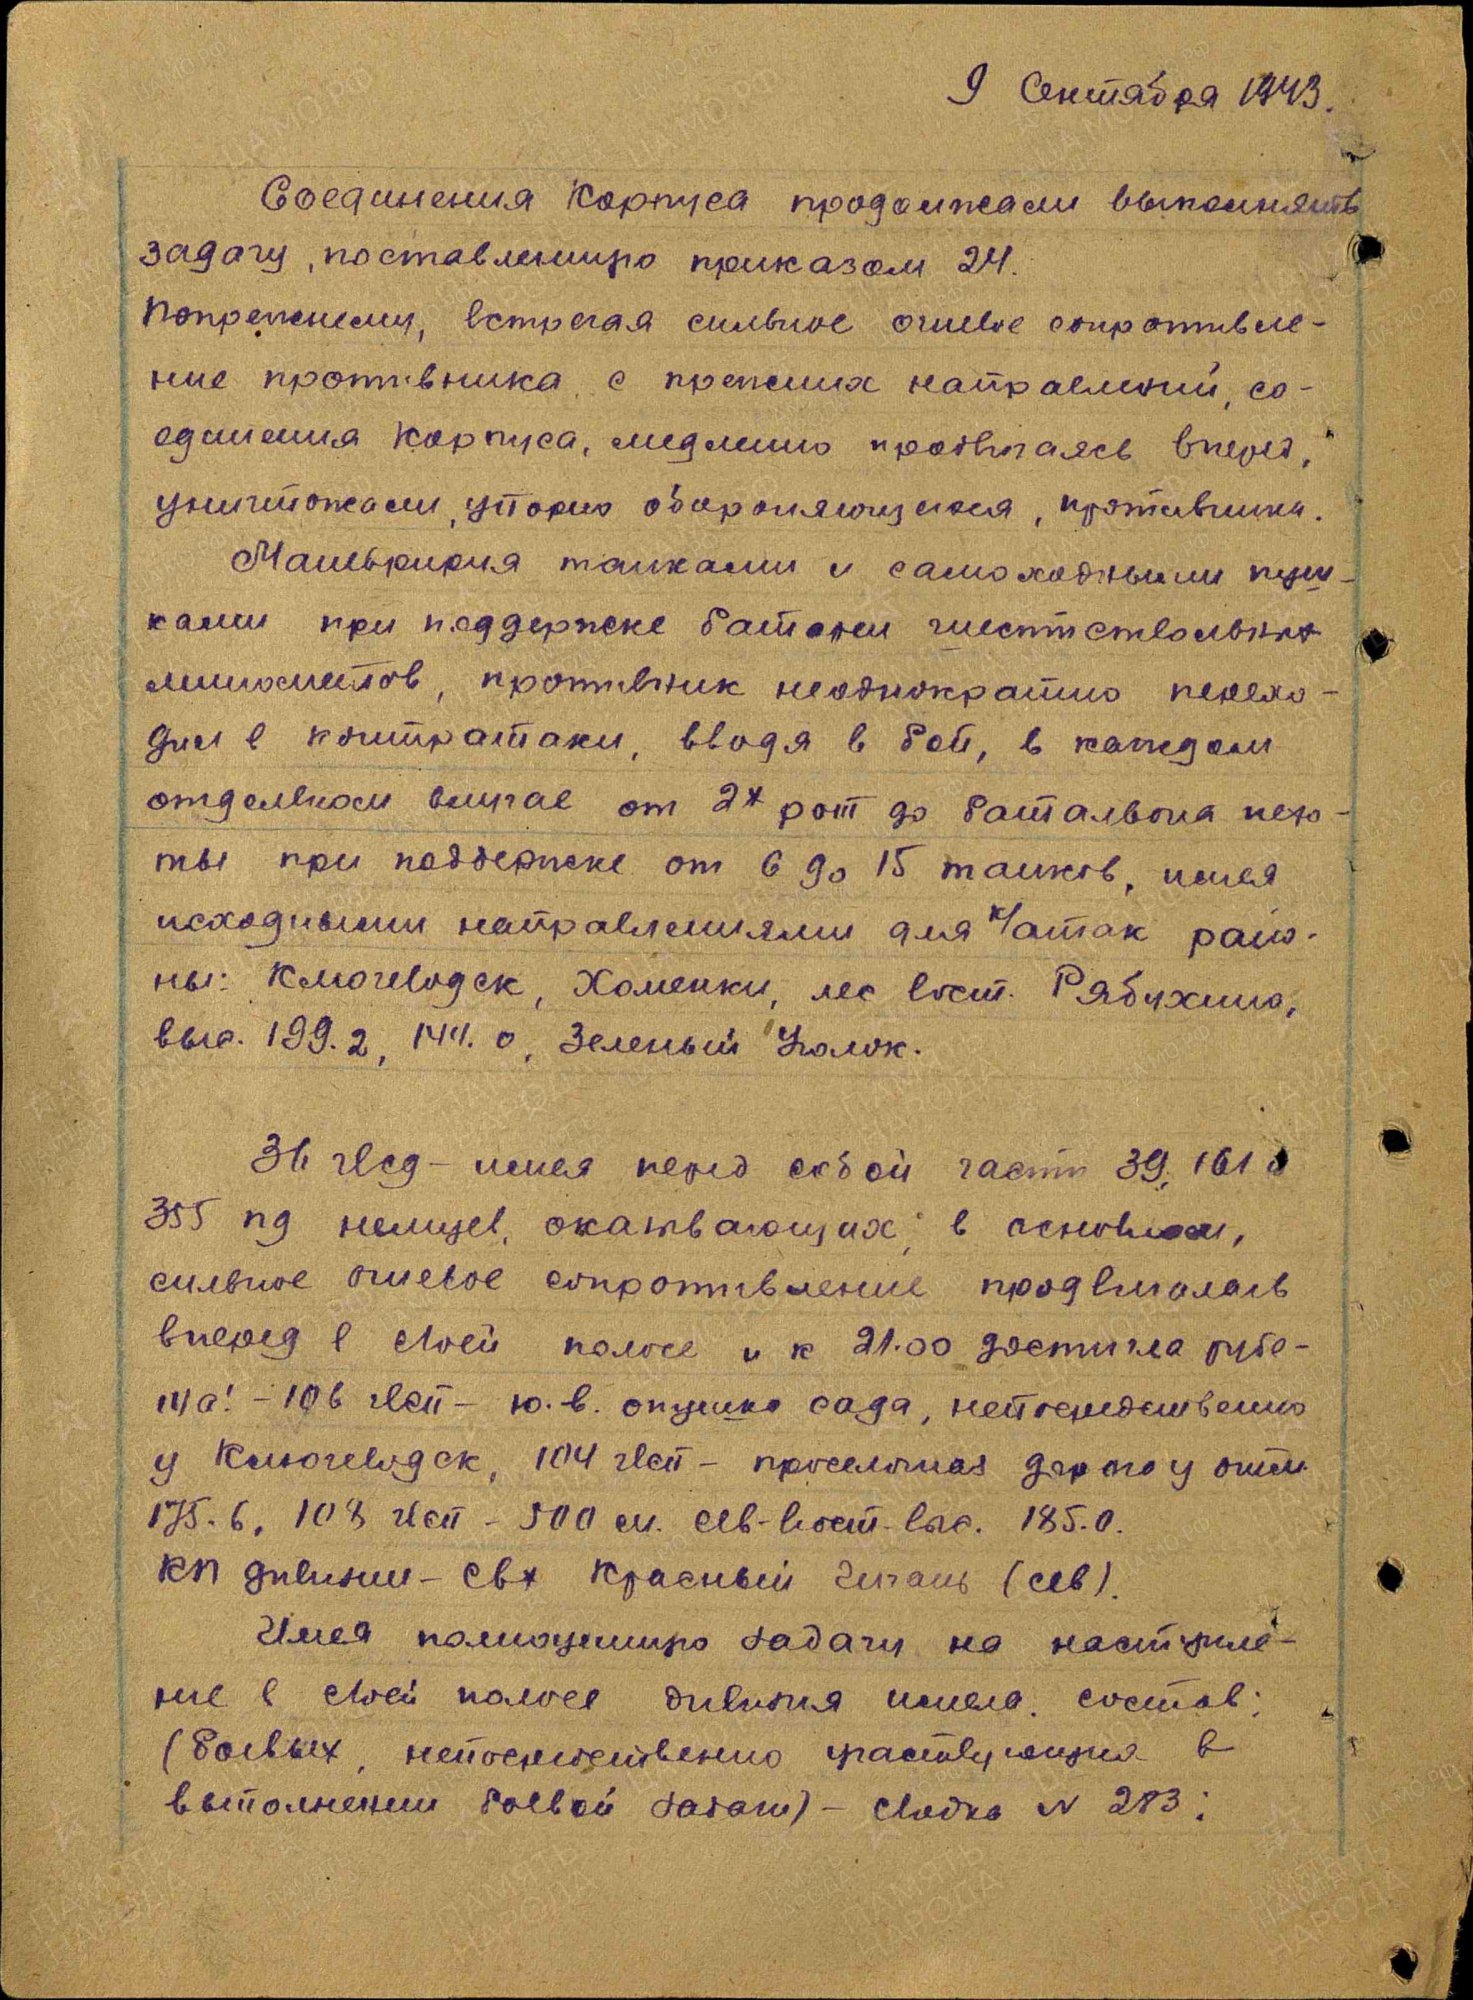 9 Сентября 1943.
Соединения Корпуса продолжали выполнять
задачу, поставленную приказом 24.
Попрежнему, встречая сильное огневое сопротивле-
ние противника с прежних направлений, со-
единения Корпуса, медленно продвигаясь вперед,
уничтожали, упорно обороняющегося, противника.
Маневрируя танками и самоходными пуш-
ками при поддержке батареи шестиствольных
минометов, противник неоднократно перехо-
дил в контратаки, вводя в бой, в каждом
отдельном случае от 2х рот до батальона пехо-
ты при поддержке от 6 до 15 танков, имея
исходными направлениями для к/атак райо-
ны: Ключеводск, Хоменки, лес вост. Рябухино,
выс. 199.2, 144.0, Зеленый Уголок.
36 гвсд - имея перед собой части 39, 161 и
355 пд немцев, оказывающих, в основном,
сильное огневое сопротивление продвигалась
вперед в своей полосе и к 21.00 достигла рубе-
жа: - 106 гвсп - ю.-в. опушка сада, непосредственно
у Ключеводск, 104 гвсп - проселочная дорога у отм.
175.6, 108 гвсп - 500 м. сев-вост. выс. 185.0.
КП дивизии - свх Красный Гигант (сев).
Имея полноценную задачу на наступле-
ние в своей полосе дивизия имела состав:
(боевых, непосредственно участвующих в
выполнении боевой задачи) - сводка N 283:
ПАМЯТЬ
НАРОДА
ЦАМО.РФ